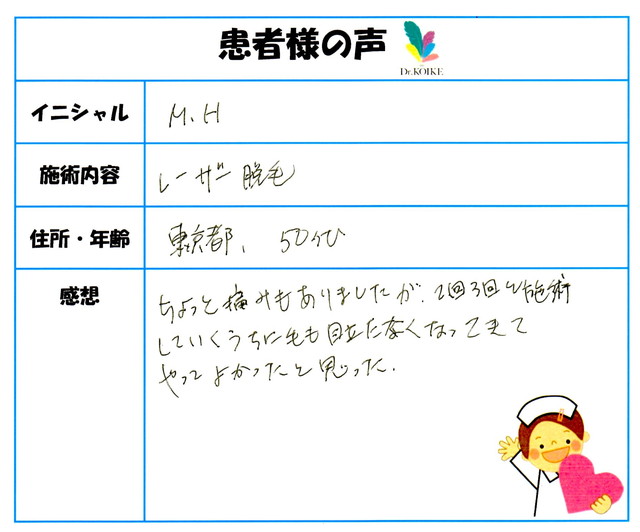 患者様の声
Dr.KOIKE
イニシャル
M.H
施術内容
レーザー脱毛
住所・年齢
東京都、50才
感想
ちょっと痛みもありましたが、2回3回と施術
していくうちに毛も目立たなくなってきて
やってよかったと思った.